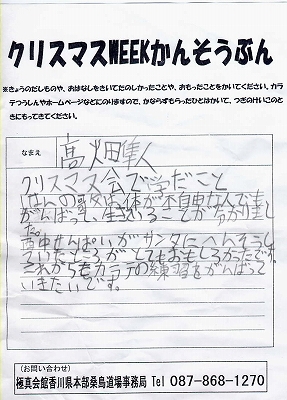 クリスマスWEEKかんそうぶん
※きょうのだしものや、おはなしをきいてたのしかったことや、おもったことをかいてください。カラ
テつうしんやホームページなどにのりますので、かならずもらったひとはかいて、つぎのけいこのと
きにもってきてください。
なまえ
高畑隼人
クリスマス会で学だこと
はんの
は、体が不自由な人でも
がんばって、生きれることが分かりまし
た。
西中せんぱいがサンタにへんそうし
ていたところが、とてもおもしろかったです。
これからもカラテの練習をがんばって
いきたいです。
(お問い合わせ)
極真会館香川県本部桑島道場事務局 Tel 087-868-1270